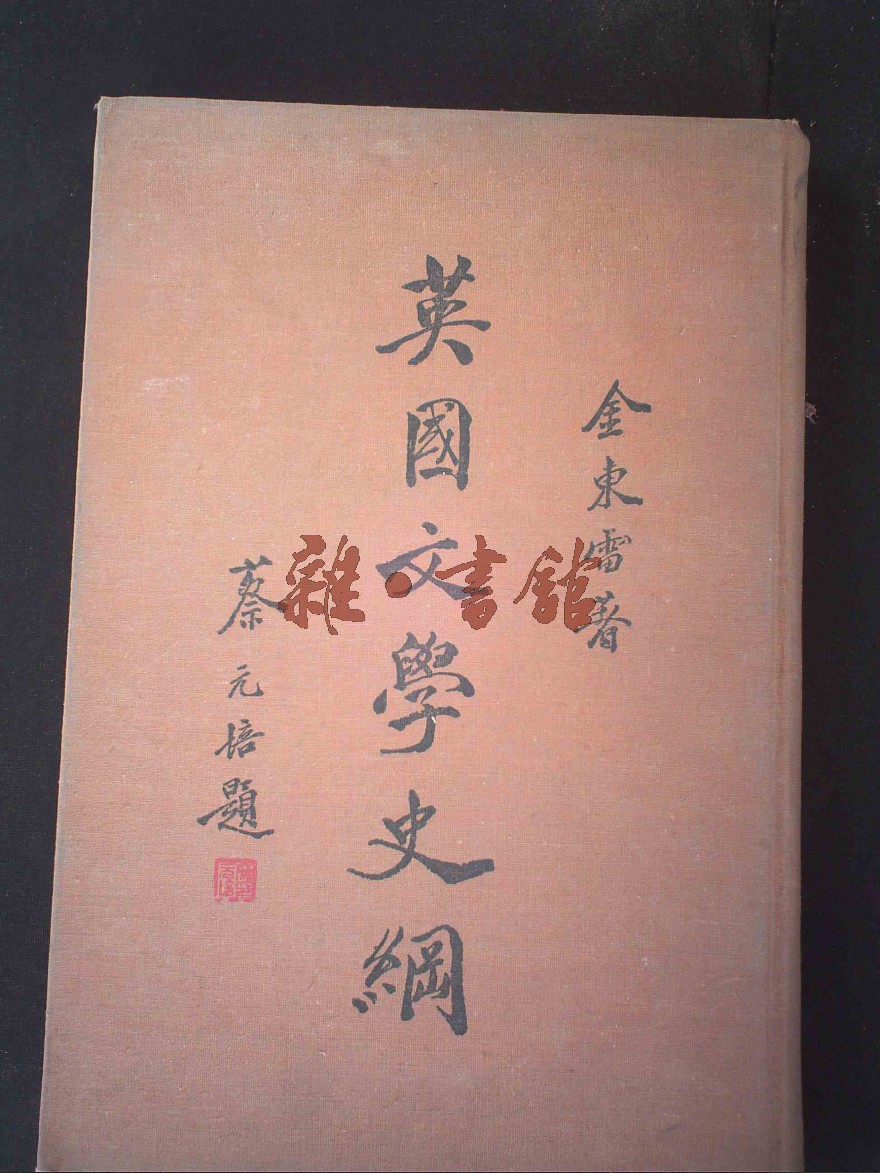 金東雷著
英國文學史綱
蔡元培題
雜·書館